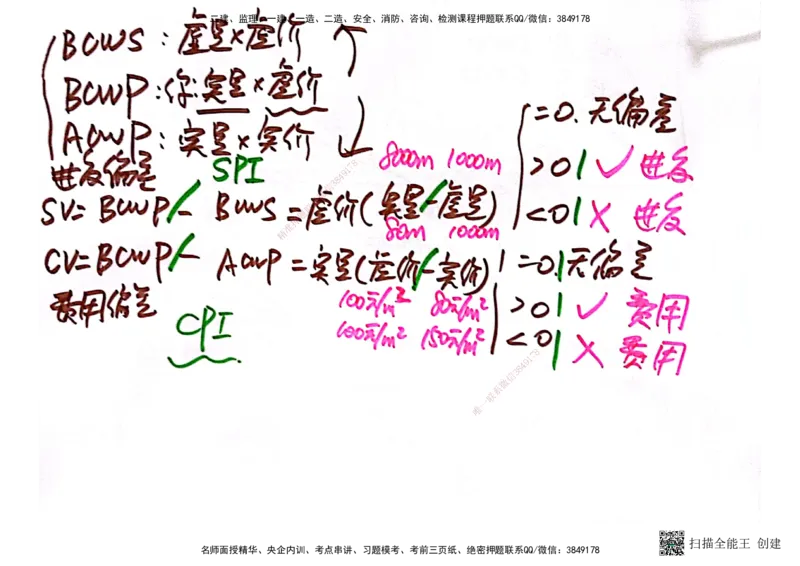 二建、监理、一建、一造、二造、安全、消防、咨询、检测课程押题联系QQ/微信：3849178
BCWS：虚量×虚价
BCWP：你：实量×虚价
ACWP：实量×实价
=0. 无偏差
进度偏差 SPI 8000m 1000m >0 1 ✓ 进度
SV= BCWP/- BCWS = 虚价(实量/-虚量) <0 1 X 进度
80m 1000m
CV=BCWP/- ACWP = 实量(虚价/-实价) =0.1 无偏差
费用偏差 100元/m² 80元/m² >0 1 ✓ 费用
CPI 100元/m² 150元/m² <0 1 X 费用
唯一联系微信：3849178
名师面授精华、央企内训、考点串讲、习题模考、考前三页纸、绝密押题联系QQ/微信：3849178
扫描全能王 创建